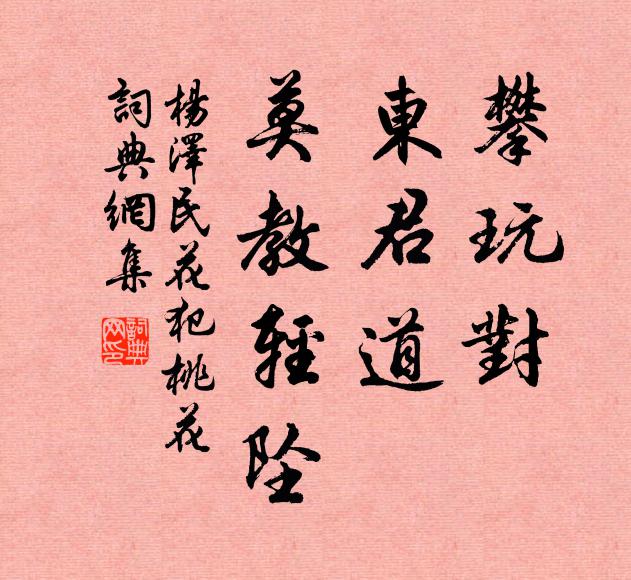 攀玩對
東君道
莫教輕坠
楊澤民花犯桃花
詞典網集
詞典網印